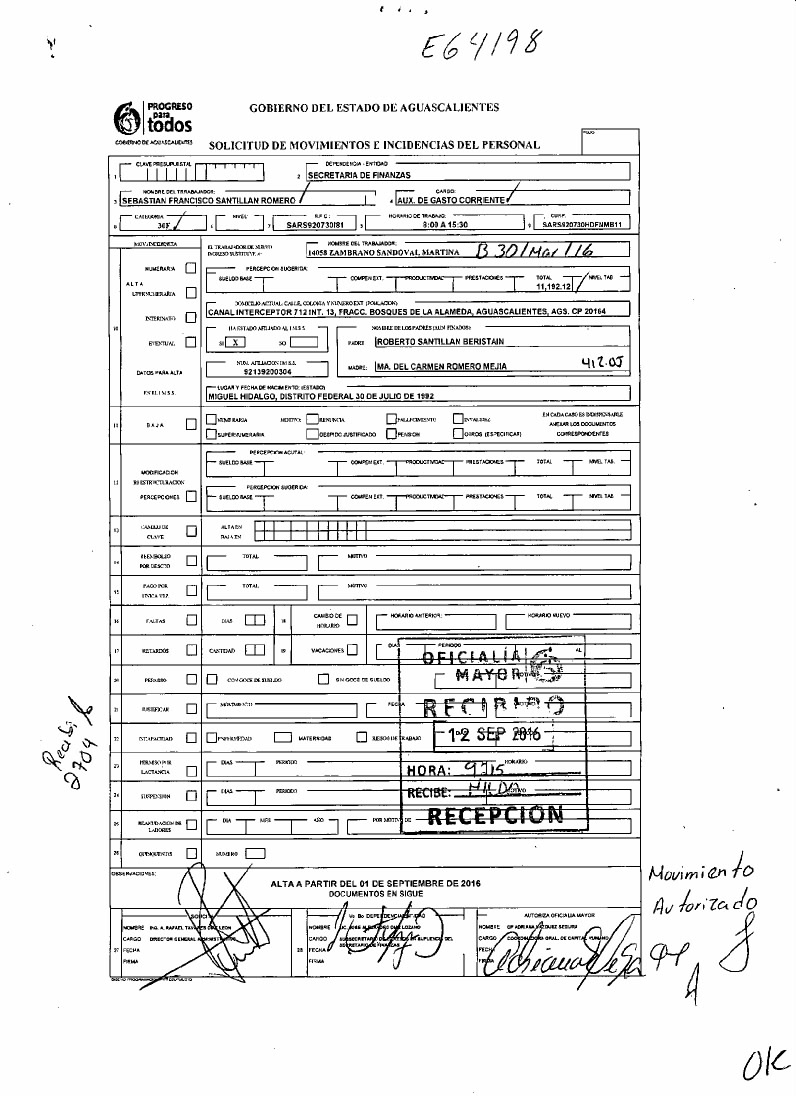 E64198
PROGRESO
para
todos
GOBIERNO DE AGUASCALIENTES
GOBIERNO DEL ESTADO DE AGUASCALIENTES
SOLICITUD DE MOVIMIENTOS E INCIDENCIAS DEL PERSONAL
FOLIO
1 CLAVE PRESUPUESTAL
2 DEPENDENCIA - ENTIDAD
SECRETARIA DE FINANZAS
3 NOMBRE DEL TRABAJADOR:
SEBASTIAN FRANCISCO SANTILLAN ROMERO
4 CARGO:
AUX. DE GASTO CORRIENTE
5 CATEGORIA
30F
6 NIVEL
7 R.F.C.
SARS920730I81
8 HORARIO DE TRABAJO:
8:00 A 15:30
9 CURP.
SARS920730HDFNMB11
MOV/INCIDENCIA
EL TRABAJADOR DE NUEVO
INGRESO SUSTITUYE A:
NOMBRE DEL TRABAJADOR:
14058 ZAMBRANO SANDOVAL, MARTINA B 30/Mar/16
10
ALTA
NUMERARIA
UPERNUMERARIA
INTERINATO
EVENTUAL
DATOS PARA ALTA
EN EL I.M.S.S.
PERCEPCION SUGERIDA:
SUELDO BASE COMPEN EXT. PRODUCTIVIDAD PRESTACIONES TOTAL NIVEL TAB.
11,192.12
DOMICILIO ACTUAL: CALLE, COLONIA Y NUMERO EXT (POBLACION)
CANAL INTERCEPTOR 712 INT. 13, FRACC. BOSQUES DE LA ALAMEDA, AGUASCALIENTES, AGS. CP 20164
HA ESTADO AFILIADO AL I.M.S.S.
SI X NO
NOMBRE DE LOS PADRES (AUN FINADOS):
PADRE ROBERTO SANTILLAN BERISTAIN
NUM. AFILIACION I.M.S.S.
92139200304
MADRE: MA. DEL CARMEN ROMERO MEJIA
412.05
LUGAR Y FECHA DE NACIMIENTO: (ESTADO)
MIGUEL HIDALGO, DISTRITO FEDERAL 30 DE JULIO DE 1992
11 BAJA
NUMERARIA MOTIVO: RENUNCIA FALLECIMIENTO INVALIDEZ
SUPERNUMERARIA DESPIDO JUSTIFICADO PENSION OTROS (ESPECIFICAR)
EN CADA CASO ES INDISPENSABLE
ANEXAR LOS DOCUMENTOS
CORRESPONDIENTES
12 MODIFICACION
REESTRUCTURACION
PERCEPCIONES
PERCEPCION ACUTAL:
SUELDO BASE COMPEN EXT. PRODUCTIVIDAD PRESTACIONES TOTAL NIVEL TAB.
PERCEPCION SUGERIDA:
SUELDO BASE COMPEN EXT. PRODUCTIVIDAD PRESTACIONES TOTAL NIVEL TAB.
13 CAMBIO DE
CLAVE
ALTA EN
BAJA EN
14 REEMBOLSO
POR DESCTO
TOTAL MOTIVO
15 PAGO POR
UNICA VEZ.
TOTAL MOTIVO
16 FALTAS DIAS 18 CAMBIO DE
HORARIO
HORARIO ANTERIOR: HORARIO NUEVO
17 RETARDOS CANTIDAD 19 VACACIONES DIAS PERIODO AL
20 PERMISO CON GOCE DE SUELDO SIN GOCE DE SUELDO
21 JUSTIFICAR MOVIMIENTO FECHA
22 INCAPACIDAD ENFERMEDAD MATERNIDAD RIESGO DE TRABAJO
23 PERMISO POR
LACTANCIA
DIAS PERIODO HORARIO
24 SUSPENSION DIAS PERIODO MOTIVO
25 REANUDACION DE
LABORES
DIA MES AÑO POR MOTIVO DE
26 QUINQUENIOS NUMERO
OFICIALIA
MAYOR
RECIBIDO
12 SEP 2016
HORA: 9:15
RECIBE: HILDA
RECEPCION
Recibi
2704
OBSERVACIONES:
ALTA A PARTIR DEL 01 DE SEPTIEMBRE DE 2016
DOCUMENTOS EN SIGUE
Movimiento
Autorizado
27
NOMBRE ING. A. RAFAEL
CARGO DIRECTOR GENERAL ADMINISTRATIVO
FECHA
FIRMA
28
Vo Bo DEPENDENCIA
NOMBRE LIC. JOSE LOZANO
CARGO
FECHA
FIRMA
AUTORIZA OFICIALIA MAYOR
NOMBRE CP ADRIANA VAZQUEZ SEGURA
CARGO COORDINADORA GRAL. DE CAPITAL HUMANO
FECHA
FIRMA
OK